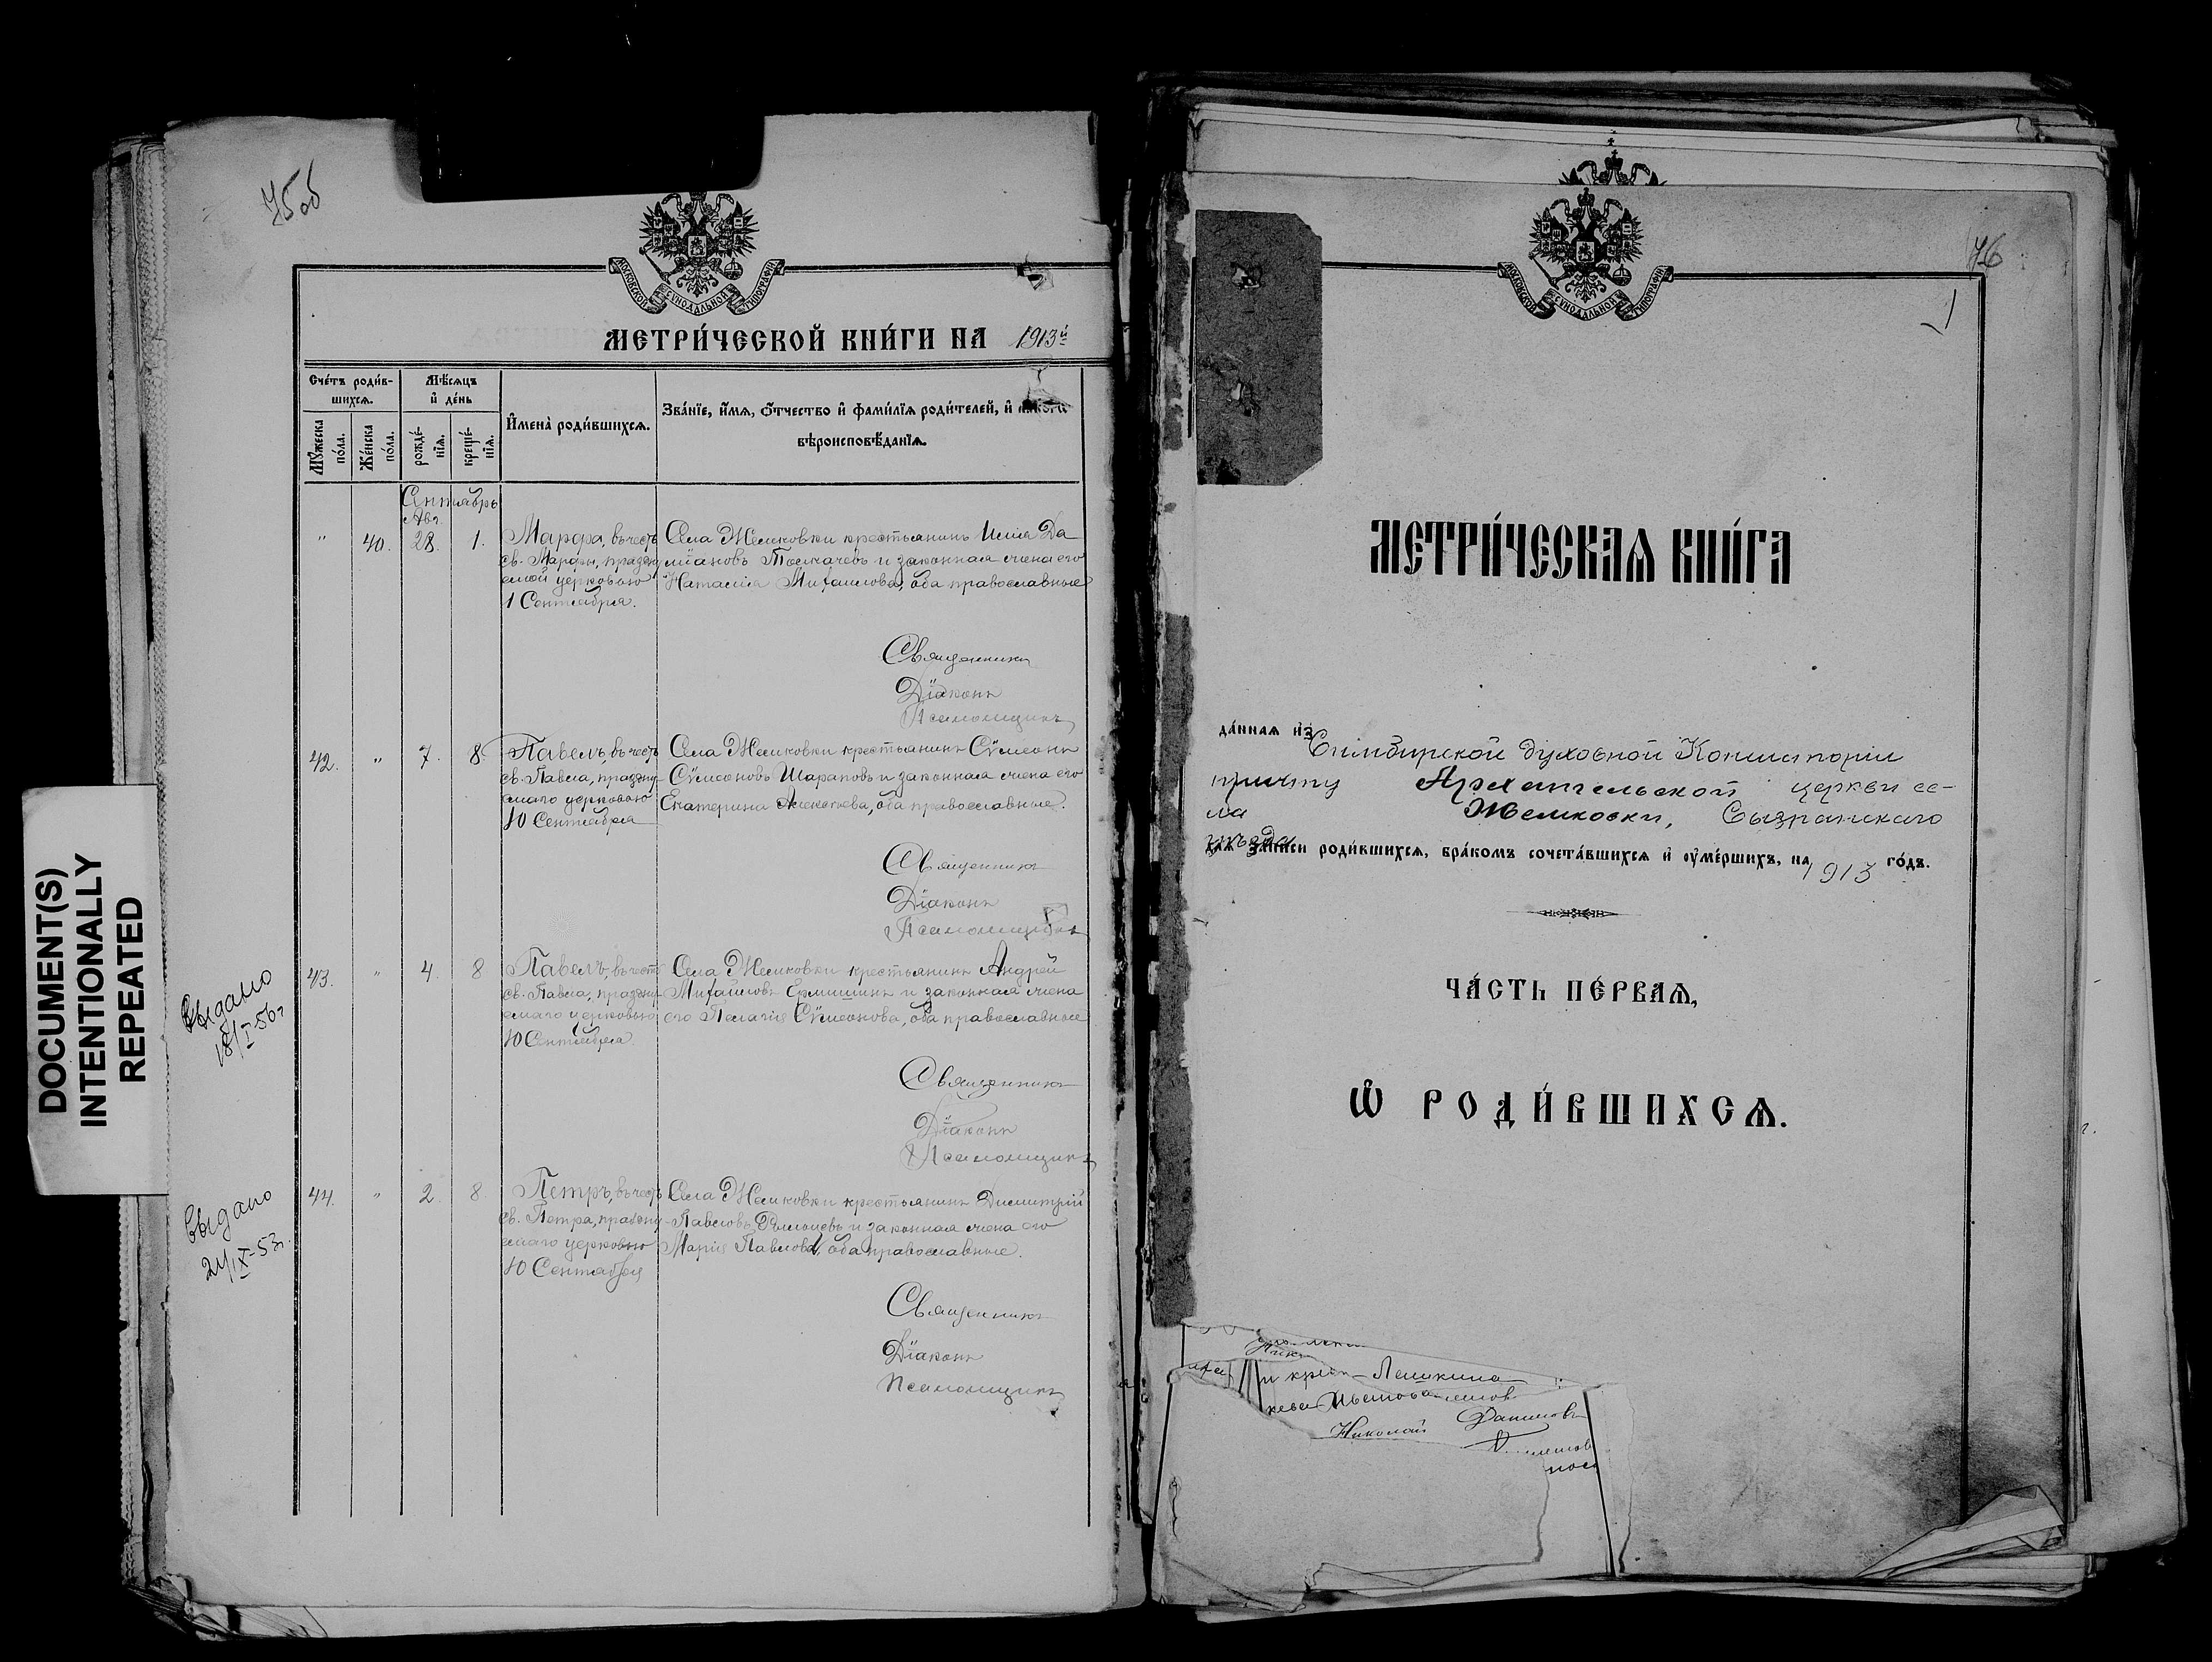 45об
МОСКОВСКОЙ СѴНОДАЛЬНОЙ ТИПОГРАФІИ
МЕТРИ́ЧЕСКОЙ КНИ́ГИ НА 1913й
Сче́тъ роди́в-
шихсѧ.
Мѣ́сѧцъ
и҆ де́нь
Мꙋ́жеска
по́ла.
Же́нска
по́ла.
рожде́-
нїѧ.
креще́-
нїѧ.
И҆мена̀ роди́вшихсѧ.
Зва́нїе, и҆́мѧ, ѻ҆́тчество и҆ фами́лїѧ роди́телей, и҆
вѣроисповѣ́данїѧ.
Сентябрь
Авг.
" 40. 28. 1.
Марфа, въ честь
св. Марфы, праздну
емой церковью
1 Сентября.
Села Жемковки крестьянинъ Илія Да
міановъ Толкачевъ и законная жена его
Наталія Михаилова, оба православные
Священникъ
Дїаконъ
Псаломщикъ
42. " 7. 8.
Павелъ, въ честь
св. Павла, праздну-
емаго церковью
10 Сентября
Села Жемковки крестьянинъ Сѵмеонъ
Сѵмеоновъ Шараповъ и законная жена его
Екатерина Алексѣева, оба православные.
Священникъ
Дїаконъ
Псаломщикъ
Выдано
18/I-56г
43. " 4. 8
Павелъ, въ честь
св. Павла, праздну-
емаго церковью
10 Сентября.
Села Жемковки крестьянинъ Андрей
Михаиловъ Ермишинъ и законная жена
его Пелагія Сѵмеонова, оба православные
Священникъ
Дїаконъ
Псаломщикъ
Выдано
21/IX-53г.
44. " 2. 8
Петръ, въ честь
св. Петра, праздну-
емаго церковью
10 Сентября
Села Жемковки крестьянинъ Димитрій
Павловъ и законная жена его
Марія Павлова, оба православные.
Священникъ
Дїаконъ
Псаломщикъ
DOCUMENT(S)
INTENTIONALLY
REPEATED
46
1
МОСКОВСКОЙ СѴНОДАЛЬНОЙ ТИПОГРАФІИ
МЕТРИ́ЧЕСКАѦ КНИ́ГА
да́ннаѧ и҆з Симбирской духовной Консисторіи
причту Архангельской церкви се-
ла Жемковки, Сызранскаго
уѣзда
для за́писи роди́вшихсѧ, бра́комъ сочета́вшихсѧ и҆ ᲂу҆ме́ршихъ, на 1913 го́дъ.
ЧА́СТЬ ПЕ́РВАѦ,
Ѡ҆ РОДИ́ВШИХСѦ.
Николай